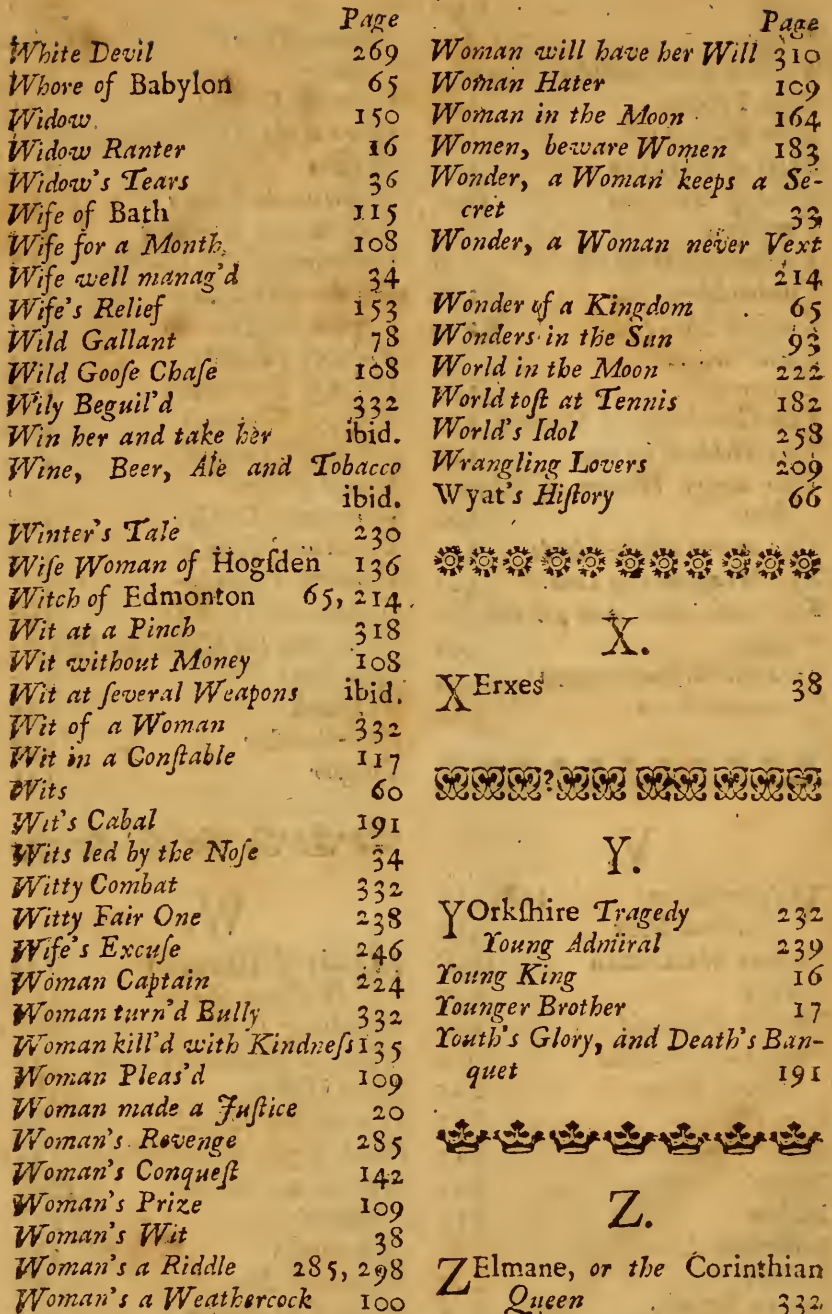 Page
White Devil 269
Whore of Babylon 65
Widow 150
Widow Ranter 16
Widow's Tears 36
Wife of Bath 115
Wife for a Month 108
Wife well manag'd 34
Wife's Relief 153
Wild Gallant 78
Wild Gooſe Chaſe 108
Wily Beguil'd 332
Win her and take her ibid.
Wine, Beer, Ale and Tobacco
ibid.
Winter's Tale 230
Wiſe Woman of Hogſden 136
Witch of Edmonton 65, 214
Wit at a Pinch 318
Wit without Money 108
Wit at ſeveral Weapons ibid.
Wit of a Woman 332
Wit in a Conſtable 117
Wits 60
Wit's Cabal 191
Wits led by the Noſe 34
Witty Combat 332
Witty Fair One 238
Wife's Excuſe 246
Woman Captain 224
Woman turn'd Bully 332
Woman kill'd with Kindneſs 135
Woman Pleas'd 109
Woman made a Juſtice 20
Woman's Revenge 285
Woman's Conqueſt 142
Woman's Prize 109
Woman's Wit 38
Woman's a Riddle 285, 298
Woman's a Weathercock 100
Page
Woman will have her Will 310
Woman Hater 109
Woman in the Moon 164
Women, beware Women 183
Wonder, a Woman keeps a Se-
cret 33
Wonder, a Woman never Vext
214
Wonder of a Kingdom 65
Wonders in the Sun 93
World in the Moon 222
World toſt at Tennis 182
World's Idol 258
Wrangling Lovers 209
Wyat's Hiſtory 66
X.
XErxes 38
Y.
YOrkſhire Tragedy 232
Young Admiral 239
Young King 16
Younger Brother 17
Youth's Glory, and Death's Ban-
quet 191
Z.
ZElmane, or the Corinthian
Queen 332